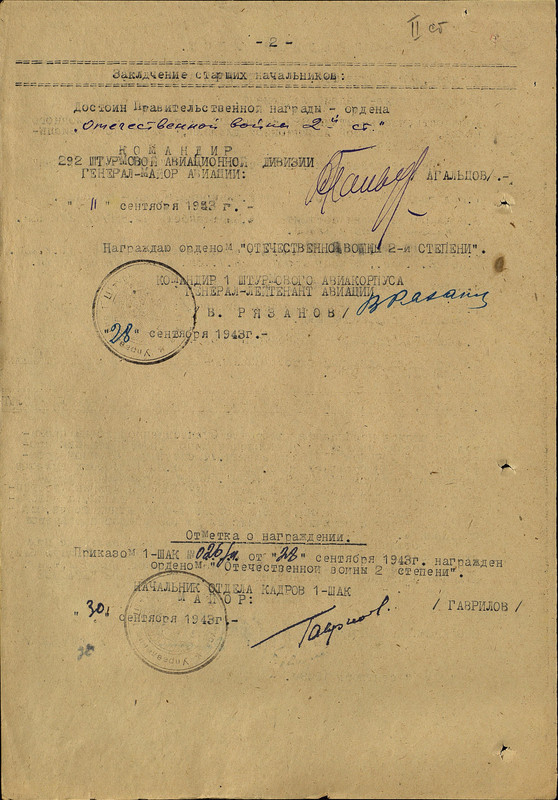 II ст
- 2 -
Заключение старших начальников:
Достоин Правительственной награды - ордена
"Отечественной война 2й ст."
КОМАНДИР
292 ШТУРМОВОЙ АВИАЦИОННОЙ ДИВИЗИИ
ГЕНЕРАЛ-МАЙОР АВИАЦИИ:
АГАЛЬЦОВ/.-
"11" сентября 1943 г. -
Награждаю орденом "ОТЕЧЕСТВЕННО ВОЙНЫ 2-й СТЕПЕНИ".
КОМАНДИР 1 ШТУРМОВОГО АВИАКОРПУСА
ГЕНЕРАЛ-ЛЕЙТЕНАНТ АВИАЦИИ
/В. РЯЗАНОВ/ ВРязанов
"28" сентября 1943г.-
Отметка о награждении.
Приказом 1-ШАК № 026/н от "28" сентября 1943г. награжден
орденом "Отечественной войны 2 степени".
НАЧАЛЬНИК ОТДЕЛА КАДРОВ 1-ШАК
МАЙОР:
/ ГАВРИЛОВ /
"30" сентября 1943г.-
Гаврилов